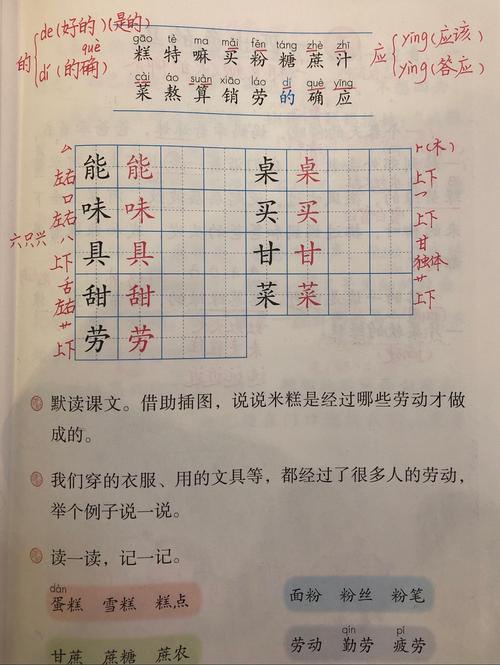 的 de(好的)(是的)
dí(的què确)
gāo tè ma mǎi fěn táng zhè zhī
糕 特 嘛 买 粉 糖 蔗 汁
cài áo suàn xiāo láo dí què yīng
菜 熬 算 销 劳 的 确 应
应 yīng(应该)
yìng(答应)
厶 左右 能 能 桌 桌 ⺊(木) 上下
口 左右 味 味 买 买 乛 上下
六只兴 八 上下 具 具 甘 甘 甘 独体
舌 左右 甜 甜 菜 菜 艹 上下
艹 上下 劳 劳
默读课文。借助插图，说说米糕是经过哪些劳动才做
成的。
我们穿的衣服、用的文具等，都经过了很多人的劳动，
举个例子说一说。
读一读，记一记。
dàn
蛋糕 雪糕 糕点
面粉 粉丝 粉笔
甘蔗 蔗糖 蔗农
qín pí
劳动 勤劳 疲劳